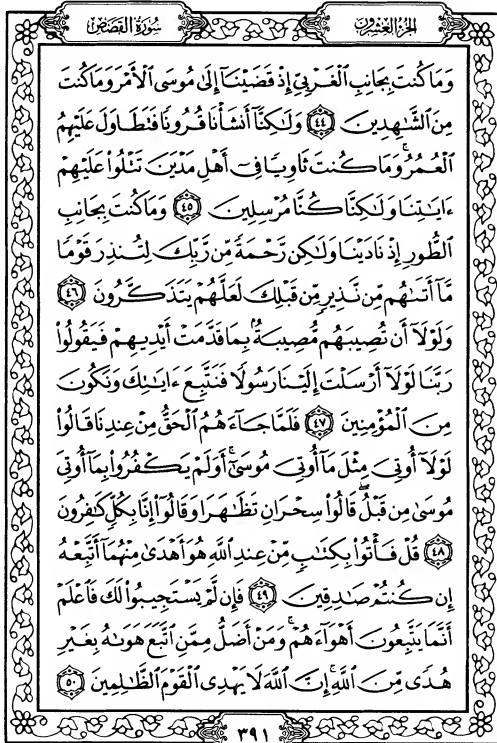 سُورَةُ القَصَصِ
الجُزْءُ العِشْرُونَ
وَمَا كُنتَ بِجَانِبِ ٱلْغَرْبِيِّ إِذْ قَضَيْنَآ إِلَىٰ مُوسَى ٱلْأَمْرَ وَمَا كُنتَ
مِنَ ٱلشَّٰهِدِينَ ٤٤ وَلَٰكِنَّآ أَنشَأْنَا قُرُونًا فَتَطَاوَلَ عَلَيْهِمُ
ٱلْعُمُرُ ۚ وَمَا كُنتَ ثَاوِيًا فِىٓ أَهْلِ مَدْيَنَ تَتْلُوا۟ عَلَيْهِمْ
ءَايَٰتِنَا وَلَٰكِنَّا كُنَّا مُرْسِلِينَ ٤٥ وَمَا كُنتَ بِجَانِبِ
ٱلطُّورِ إِذْ نَادَيْنَا وَلَٰكِن رَّحْمَةً مِّن رَّبِّكَ لِتُنذِرَ قَوْمًا
مَّآ أَتَىٰهُم مِّن نَّذِيرٍ مِّن قَبْلِكَ لَعَلَّهُمْ يَتَذَكَّرُونَ ٤٦
وَلَوْلَآ أَن تُصِيبَهُم مُّصِيبَةٌۢ بِمَا قَدَّمَتْ أَيْدِيهِمْ فَيَقُولُوا۟
رَبَّنَا لَوْلَآ أَرْسَلْتَ إِلَيْنَا رَسُولًا فَنَتَّبِعَ ءَايَٰتِكَ وَنَكُونَ
مِنَ ٱلْمُؤْمِنِينَ ٤٧ فَلَمَّا جَآءَهُمُ ٱلْحَقُّ مِنْ عِندِنَا قَالُوا۟
لَوْلَآ أُوتِىَ مِثْلَ مَآ أُوتِىَ مُوسَىٰٓ ۚ أَوَلَمْ يَكْفُرُوا۟ بِمَآ أُوتِىَ
مُوسَىٰ مِن قَبْلُ ۖ قَالُوا۟ سِحْرَانِ تَظَٰهَرَا وَقَالُوٓا۟ إِنَّا بِكُلٍّ كَٰفِرُونَ
٤٨ قُلْ فَأْتُوا۟ بِكِتَٰبٍ مِّنْ عِندِ ٱللَّهِ هُوَ أَهْدَىٰ مِنْهُمَآ أَتَّبِعْهُ
إِن كُنتُمْ صَٰدِقِينَ ٤٩ فَإِن لَّمْ يَسْتَجِيبُوا۟ لَكَ فَٱعْلَمْ
أَنَّمَا يَتَّبِعُونَ أَهْوَآءَهُمْ ۚ وَمَنْ أَضَلُّ مِمَّنِ ٱتَّبَعَ هَوَىٰهُ بِغَيْرِ
هُدًى مِّنَ ٱللَّهِ ۚ إِنَّ ٱللَّهَ لَا يَهْدِى ٱلْقَوْمَ ٱلظَّٰلِمِينَ ٥٠
٣٩١